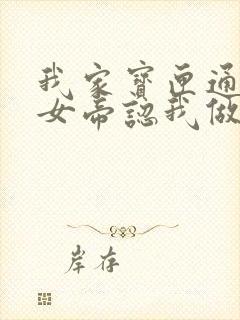 我家寶匣通
女帝認我做
岸存